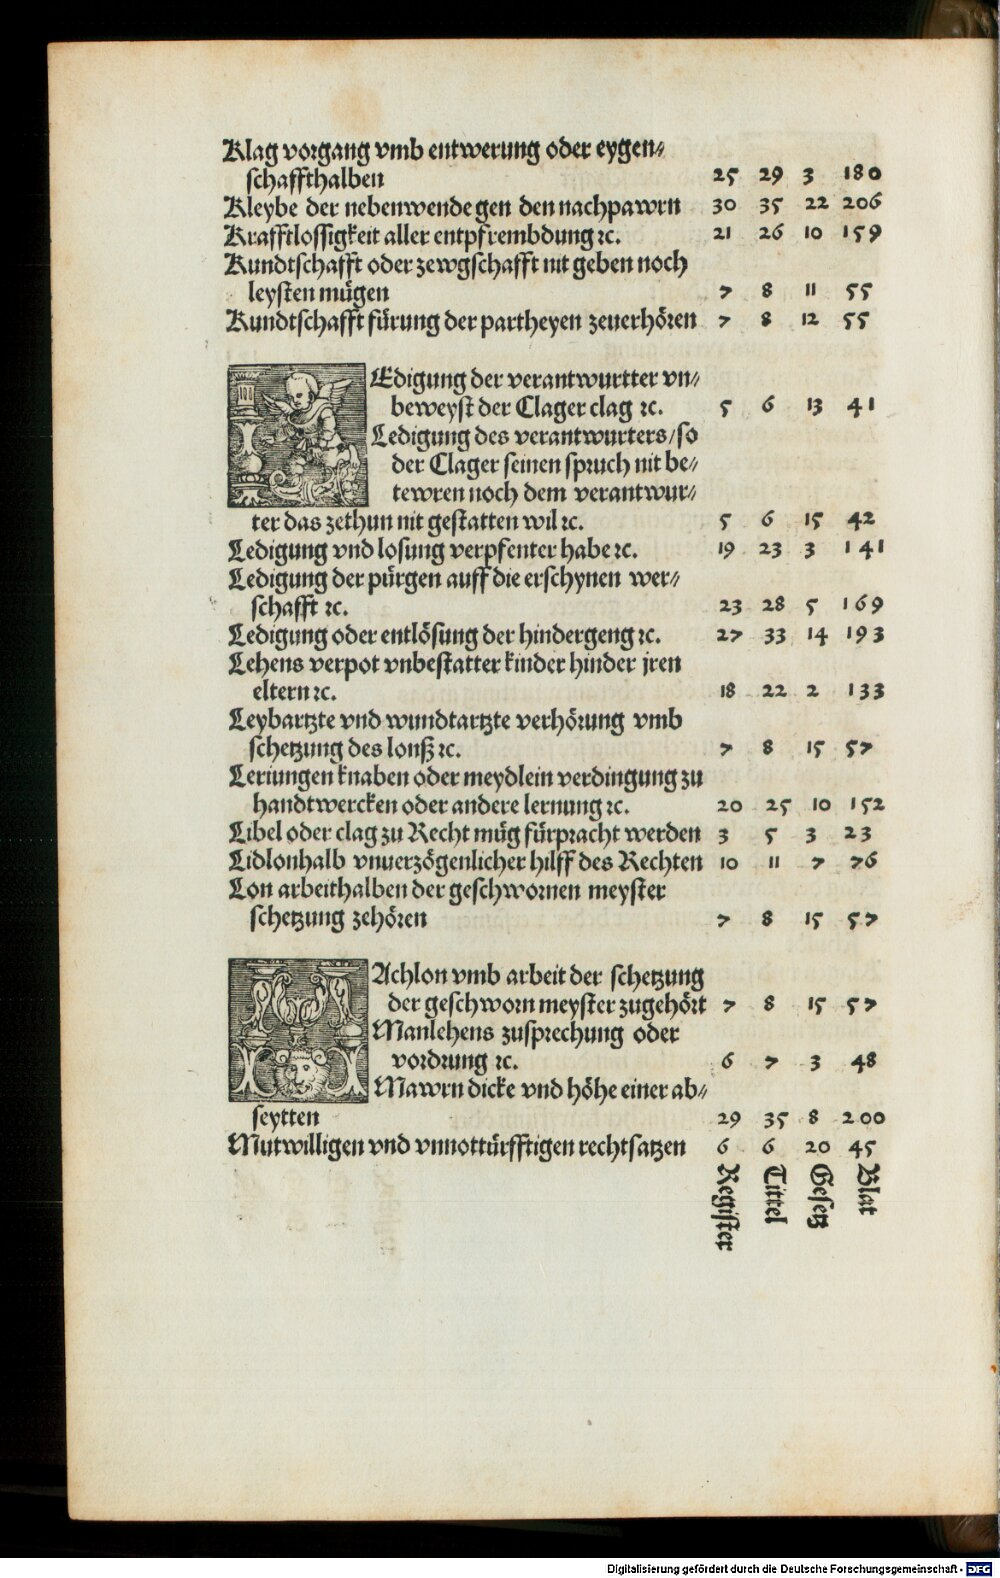 Klag vorgang vmb entwerung oder eygen⸗
schaffthalben 25 29 3 180
Kleybe der nebenwende gen den nachpawrn 30 35 22 206
Krafftlossigkeit aller entpfrembdung ꝛc. 21 26 10 159
Kundtschafft oder zewgschafft nit geben noch
leysten mügen 7 8 11 55
Kundtschafft fürung der partheyen zeuerhören 7 8 12 55
LEdigung der verantwurtter vn⸗
beweyst der Clager clag ꝛc. 5 6 13 41
Ledigung des verantwurters/so
der Clager seinen spruch nit be⸗
tewren noch dem verantwur⸗
ter das zethun nit gestatten wil ꝛc. 5 6 15 42
Ledigung vnd losung verpfenter habe ꝛc. 19 23 3 141
Ledigung der pürgen auff die erschynen wer⸗
schafft ꝛc. 23 28 5 169
Ledigung oder entlösung der hindergeng ꝛc. 27 33 14 193
Lehens verpot vnbestatter kinder hinder jren
eltern ꝛc. 18 22 2 133
Leybartzte vnd wundtartzte verhörung vmb
schetzung des lonß ꝛc. 7 8 15 57
Leriungen knaben oder meydlein verdingung zu
handtwercken oder andere lernung ꝛc. 20 25 10 152
Libel oder clag zu Recht müg fürpracht werden 3 5 3 23
Lidlonhalb vnuerzögenlicher hilff des Rechten 10 11 7 76
Lon arbeithalben der geschwornen meyster
schetzung zehören 7 8 15 57
MAchlon vmb arbeit der schetzung
der geschworn meyster zugehört 7 8 15 57
Manlehens zusprechung oder
vordrung ꝛc. 6 7 3 48
Mawrn dicke vnd höhe einer ab⸗
seytten 29 35 8 200
Mutwilligen vnd vnnottürfftigen rechtsatzen 6 6 20 45
Register Tittel Gesetz Blat
Digitalisierung gefördert durch die Deutsche Forschungsgemeinschaft - DFG